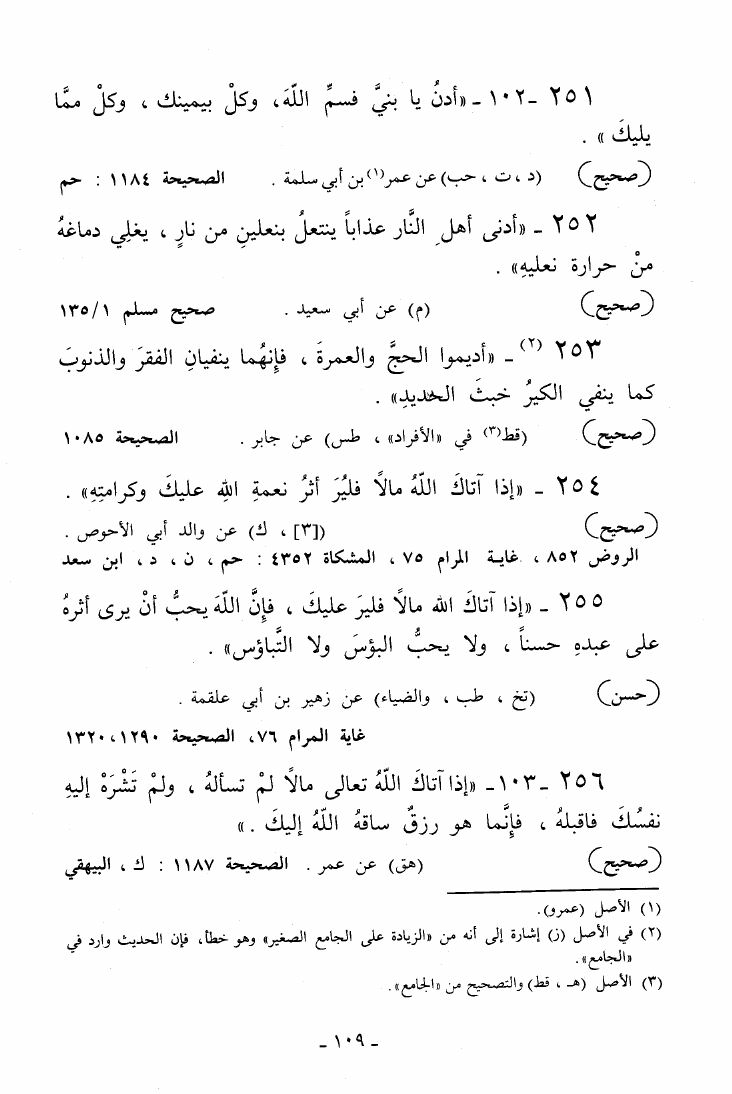 ٢٥١ -١٠٢- «أدنُ يا بنيَّ فسمِّ اللّهَ، وكلْ بيمينك ، وكلْ ممَّا
يليكَ » .
(صحيح) (د ، ت ، حب) عن عمر(١) بن أبي سلمة . الصحيحة ١١٨٤ : حم
٢٥٢ - «أدنى أهلِ النَّار عذاباً ينتعلُ بنعلينِ من نارٍ ، يغلِي دماغهُ
منْ حرارة نعليهِ» .
(صحيح) (م) عن أبي سعيد . صحيح مسلم ١٣٥/١
٢٥٣ (٢) - «أديموا الحجَّ والعمرةَ ، فإِنهُما ينفيانِ الفقرَ والذنوبَ
كما ينفي الكيرُ خبثَ الحديدِ» .
(صحيح) (قط(٣) في «الأفراد» ، طس) عن جابر . الصحيحة ١٠٨٥
٢٥٤ - «إذا آتاكَ اللّهُ مالًا فليُرَ أثرُ نعمةِ اللهِ عليكَ وكرامتِهِ» .
(صحيح) ([٣] ، ك) عن والد أبي الأحوص .
الروض ٨٥٢ ، غاية المرام ٧٥ ، المشكاة ٤٣٥٢ : حم ، ن ، د ، ابن سعد
٢٥٥ - «إذا آتاكَ الله مالًا فليرَ عليكَ ، فإِنَّ اللّهَ يحبُّ أنْ يرى أثرهُ
على عبدهِ حسناً ، ولا يحبُّ البؤسَ ولا التَّباؤس» .
(حسن) (تخ ، طب ، والضياء) عن زهير بن أبي علقمة .
غاية المرام ٧٦، الصحيحة ١٢٩٠، ١٣٢٠
٢٥٦ -١٠٣- «إذا آتاكَ اللّهُ تعالى مالًا لمْ تسألهُ ، ولمْ تَشْرَهْ إليهِ
نفسُكَ فاقبلهُ ، فإِنَّما هو رزقٌ ساقهُ اللّهُ إليكَ .»
(صحيح) (هق) عن عمر . الصحيحة ١١٨٧ : ك ، البيهقي
(١) الأصل (عمرو).
(٢) في الأصل (ز) إشارة إلى أنه من «الزيادة على الجامع الصغير» وهو خطأ، فإن الحديث وارد في
«الجامع».
(٣) الأصل (هـ ، قط) والتصحيح من «الجامع».
- ١٠٩ -